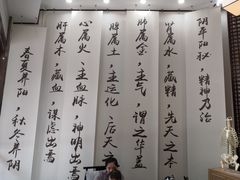 阴平阳秘，精神乃治
肾属水，藏精，先天之本
肺属金，主气，谓之华盖
脾属土，主运化，后天之
心属火，主血脉，神明出焉
肝属木，藏血，谋虑出焉
春夏养阳，秋冬养阴